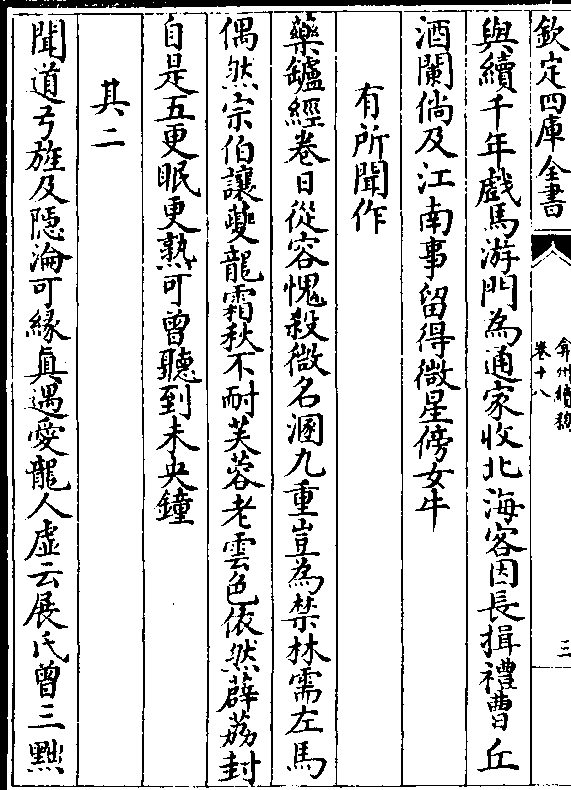 欽定四庫全書
弇州續稿
卷十八
三
與續千年戲馬游門為通家收北海客因長揖禮曹丘
酒闌倘及江南事留得微星傍女牛
有所聞作
藥鑪經卷日從容愧殺微名溷九重豈為禁林需左馬
偶然宗伯讓夔龍霜秋不耐芙蓉老雲色依然薜荔封
自是五更眠更熟可曾聽到未央鐘
其二
聞道弓旌及隱淪可緣真遇愛龍人虛云展氏曾三黜